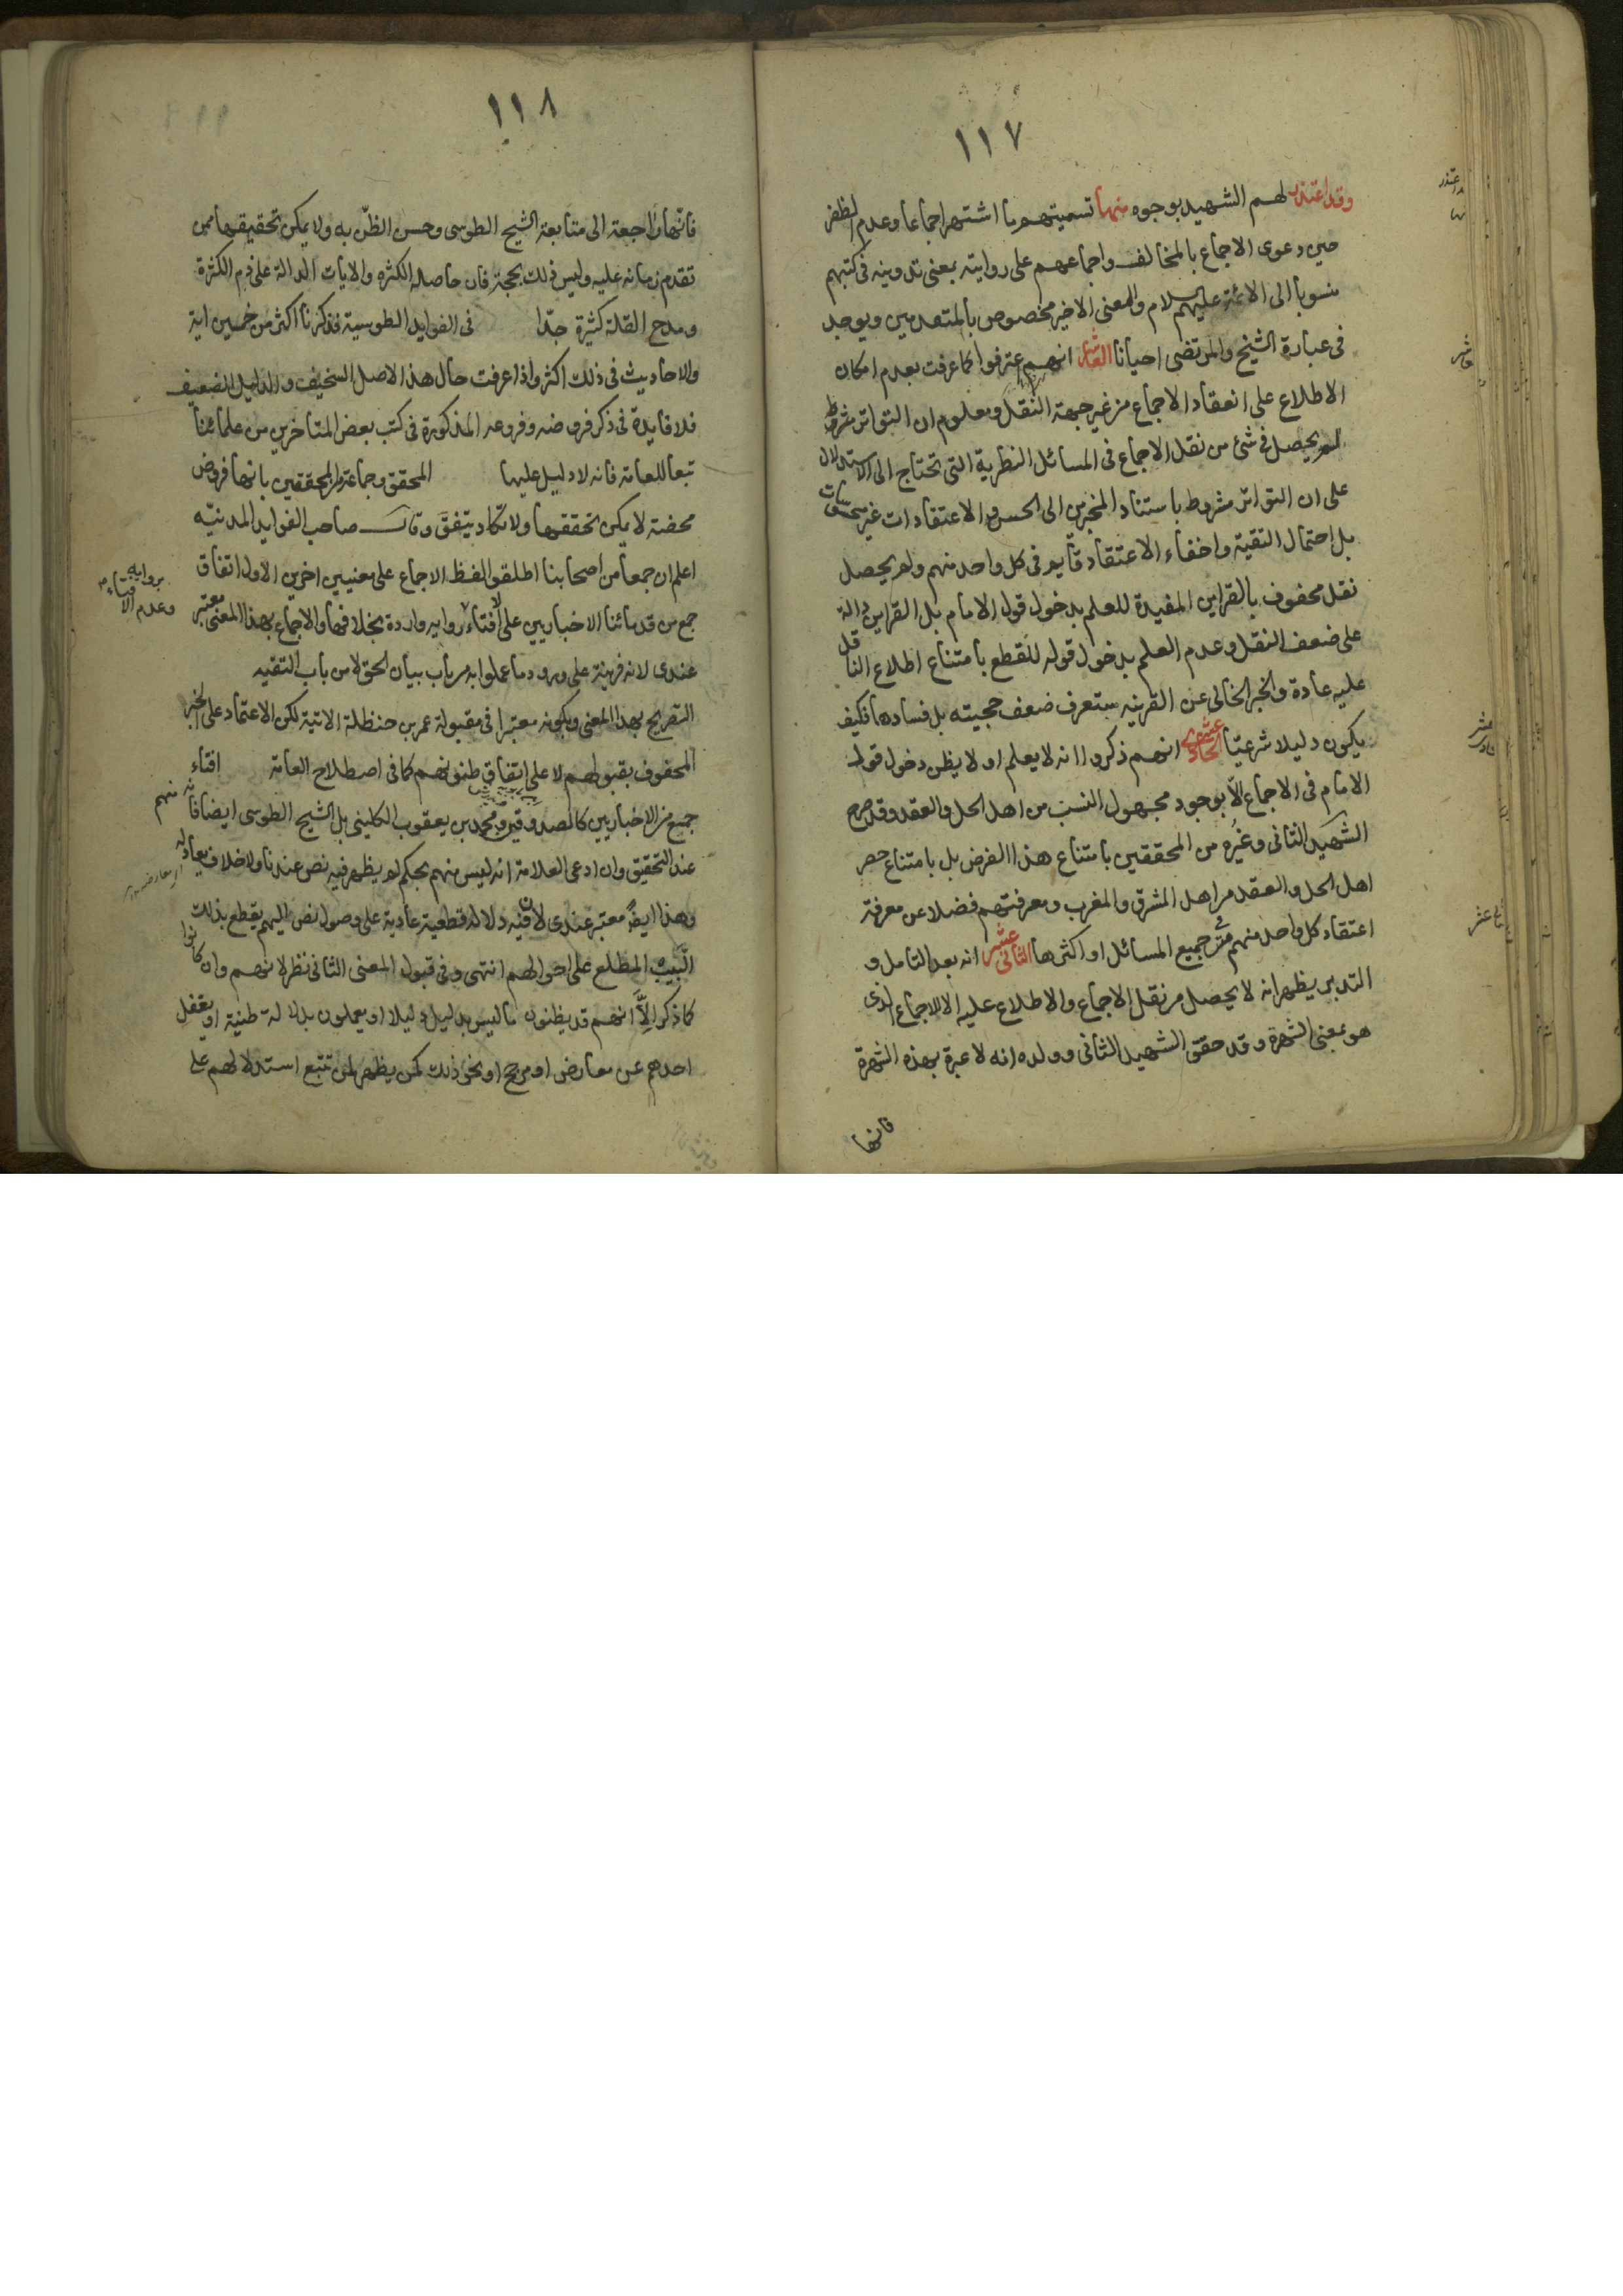 ١١٧
وقد اعتذر لهم الشهيد بوجوه منها تسميتهم ما اشتهر اجماعا وعدم الظفر
حين دعوى الاجماع بالمخالف واجماعهم على روايته بمعنى تدوينه في كتبهم
منسوبا الى الائمة عليهم السلام والمعنى الاخير مخصوص بالمتقدمين ويوجد
في عبارة الشيخ والمرتضى احيانا العاشر انهم اعترفوا كما عرفت بعدم امكان
الاطلاع على انعقاد الاجماع من غير جهة النقل ومعلوم ان التواتر بشرط
لم يحصل في شئ من نقل الاجماع في المسائل النظرية التى تحتاج الى الاستدلال
على ان التواتر مشروط باستناد المخبرين الى الحس والاعتقادات غير محسوسات
بل احتمال التقية واخفاء الاعتقاد قايم في كل واحد منهم ولم يحصل
نقل محفوف بالقراين المفيدة للعلم بدخول قول الامام بل القراين دالة
على ضعف النقل وعدم العلم بدخول قوله للقطع بامتناع اطلاع الناقل
عليه عادة والخبر الخالى عن القرينه ستعرف ضعف حجيته بل فسادها فكيف
يكون دليلا شرعيّا الحادى عشر انهم ذكروا انه لا يعلم او لا يظن دخول قول
الامام في الاجماع الّا بوجود مجهول النسب من اهل الحل والعقد وقد صرح
الشهيد الثانى وغيره من المحققين بامتناع هذا الفرض بل بامتناع حصر
اهل الحل والعقد من اهل المشرق والمغرب ومعرفتهم فضلا عن معرفة
اعتقاد كل واحد منهم في جميع المسائل او اكثرها الثانى عشر انه بعد التامل و
التدبر يظهر انه لا يحصل من نقل الاجماع والاطلاع عليه الا الاجماع الذى
هو بمعنى الشهرة وقد حقق الشهيد الثانى وولده انه لا عبرة بهذه الشهرة
فانها
اعتذر
عاشر
حادى عشر
ثانى عشر
١١٨
فانّها راجعة الى متابعة الشيخ الطوسى وحسن الظنّ به ولا يمكن تحقيقها ممن
تقدم زمانه عليه وليس ذلك بحجة فان حاصله الكثره والايات الدالة على ذم الكثرة
ومدح القلة كثيرة جدّا في الفوايد الطوسية فذكرنا اكثر من خمسين اية
والاحاديث في ذلك اكثر واذا عرفت حال هذا الاصل السخيف والدليل الضعيف
فلا فايدة في ذكر فروضه وفروعه المذكورة في كتب بعض المتاخرين من علمائنا
تبعا للعامة فانه لا دليل عليها المحقق وجماعة من المحققين بانها فروض
محضة لا يمكن تحققها ولا تكاد يتفق وقال صاحب الفوايد المدنيّه
اعلم ان جمعا من اصحابنا اطلقوا لفظ الاجماع على معنيين اخرين الاول اتفاق
جمع من قدمائنا الاخباريين على الافتاء برواية وعدم الافتاء رواية واردة بخلافها والاجماع بهذا المعنى معتبر
عندى لانه قرينة على ورود ما عملوا به من باب بيان الحق لا من باب التقيه
التصريح بهذا المعنى وبكونه معتبرا في مقبولة عمر بن حنظلة الاتية لكن الاعتماد على الخبر
المحفوف بقبولهم لا على اتفاق ظنونهم كما في اصطلاح العامة افتاء
جمع من الاخباريين كالصدوقين ومحمد بن يعقوب الكلينى بل الشيخ الطوسى ايضا فانه منهم
عند التحقيق وان ادعى العلامة انه ليس منهم بحكم لم يظهر فيه نص عندنا ولا خلاف يعادله
وهذا ايضا معتبر عندى لان فيه دلالة قطعية عادية على وصول نص اليهم يقطع بذلك
اللبيب المطلع على احوالهم انتهى وفي قبول المعنى الثانى نظر لانهم وان كانوا
كما ذكر الّا انهم قد يظنون ما ليس بدليل دليلا او يعملون بدلالة ظنية او يغفل
احدهم عن معارض او مرجح او نحو ذلك كمن يظهر لمن تتبع استدلالهم على